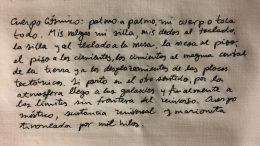 Cuerpo Cósmico: palmo a palmo, mi cuerpo toca
todo. Mis nalgas mi silla, mis dedos al teclado,
la silla y el teclado a la mesa, la mesa al piso;
el piso a los cimientos, los cimientos al magma central
de la tierra y a los desplazamientos de las placas
tectónicas. Si parto en el otro sentido, por la
atmósfera llego a las galaxias y finalmente a
los límites sin frontera del universo. Cuerpo
místico, sustancia universal y marioneta
tironeada por mil hilos.